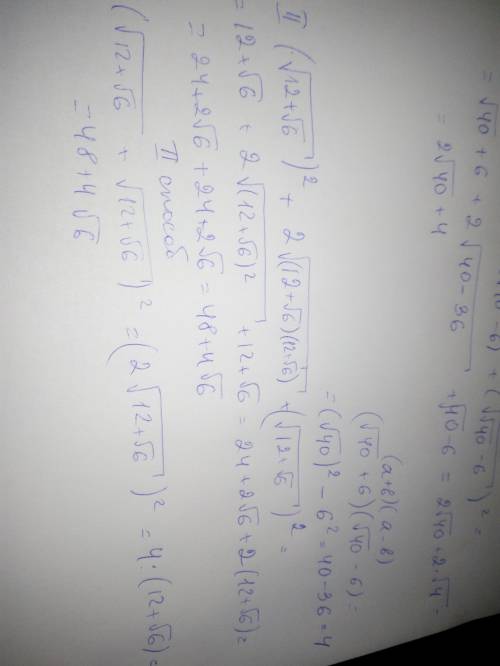 √40 - 6) + (√(√40 - 6))² =
= √40 + 6 + 2√(40 - 36) + √40 - 6 = 2√40 + 2·√4 =
= 2√40 + 4
(a+b)(a-b)
(√40 + 6)(√40 - 6) =
= (√40)² - 6² = 40 - 36 = 4
II (√(12+√6))² + 2√((12+√6)(12+√6)) + (√(12+√6))² =
= 12 + √6 + 2√((12+√6)²) + 12 + √6 = 24 + 2√6 + 2(12+√6) =
= 24 + 2√6 + 24 + 2√6 = 48 + 4√6
II способ
(√(12+√6) + √(12+√6))² = (2√(12+√6))² = 4·(12+√6) =
= 48 + 4√6